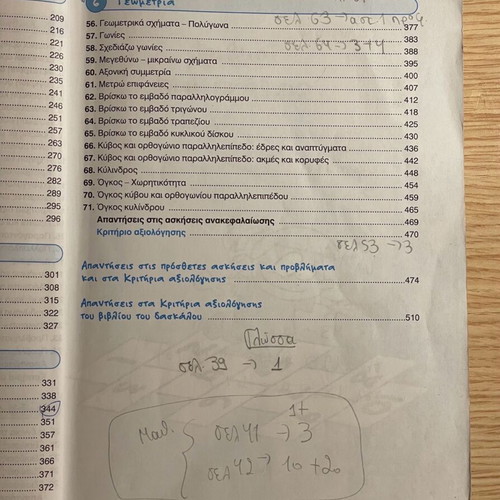 6 Γεωμετρία
σελ 63 → ασκ 1 προς
56. Γεωμετρικά σχήματα – Πολύγωνα 377
57. Γωνίες 383
σελ 64 → 3+4
58. Σχεδιάζω γωνίες 388
59. Μεγεθύνω – μικραίνω σχήματα 395
60. Αξονική συμμετρία 400
61. Μετρώ επιφάνειες 407
62. Βρίσκω το εμβαδό παραλληλογράμμου 412
63. Βρίσκω το εμβαδό τριγώνου 418
64. Βρίσκω το εμβαδό τραπεζίου 425
65. Βρίσκω το εμβαδό κυκλικού δίσκου 430
66. Κύβος και ορθογώνιο παραλληλεπίπεδο: έδρες και αναπτύγματα 436
67. Κύβος και ορθογώνιο παραλληλεπίπεδο: ακμές και κορυφές 442
68. Κύλινδρος 448
69. Όγκος – Χωρητικότητα 454
70. Όγκος κύβου και ορθογωνίου παραλληλεπιπέδου 459
71. Όγκος κυλίνδρου 465
Απαντήσεις στις ασκήσεις ανακεφαλαίωσης 469
Κριτήριο αξιολόγησης 470
σελ 53 → 3
Απαντήσεις στις πρόσθετες ασκήσεις και προβλήματα
και στα Κριτήρια αξιολόγησης 474
Απαντήσεις στα Κριτήρια αξιολόγησης
του βιβλίου του δασκάλου 510
Γλώσσα
σελ. 39 → 1
1+
Μαθ. σελ 41 → 3
σελ 42 → 10 +20
209
216
221
226
230
235
241
246
251
257
263
270
276
282
289
295
296
301
308
315
322
327
331
338
344
351
357
361
366
371
372